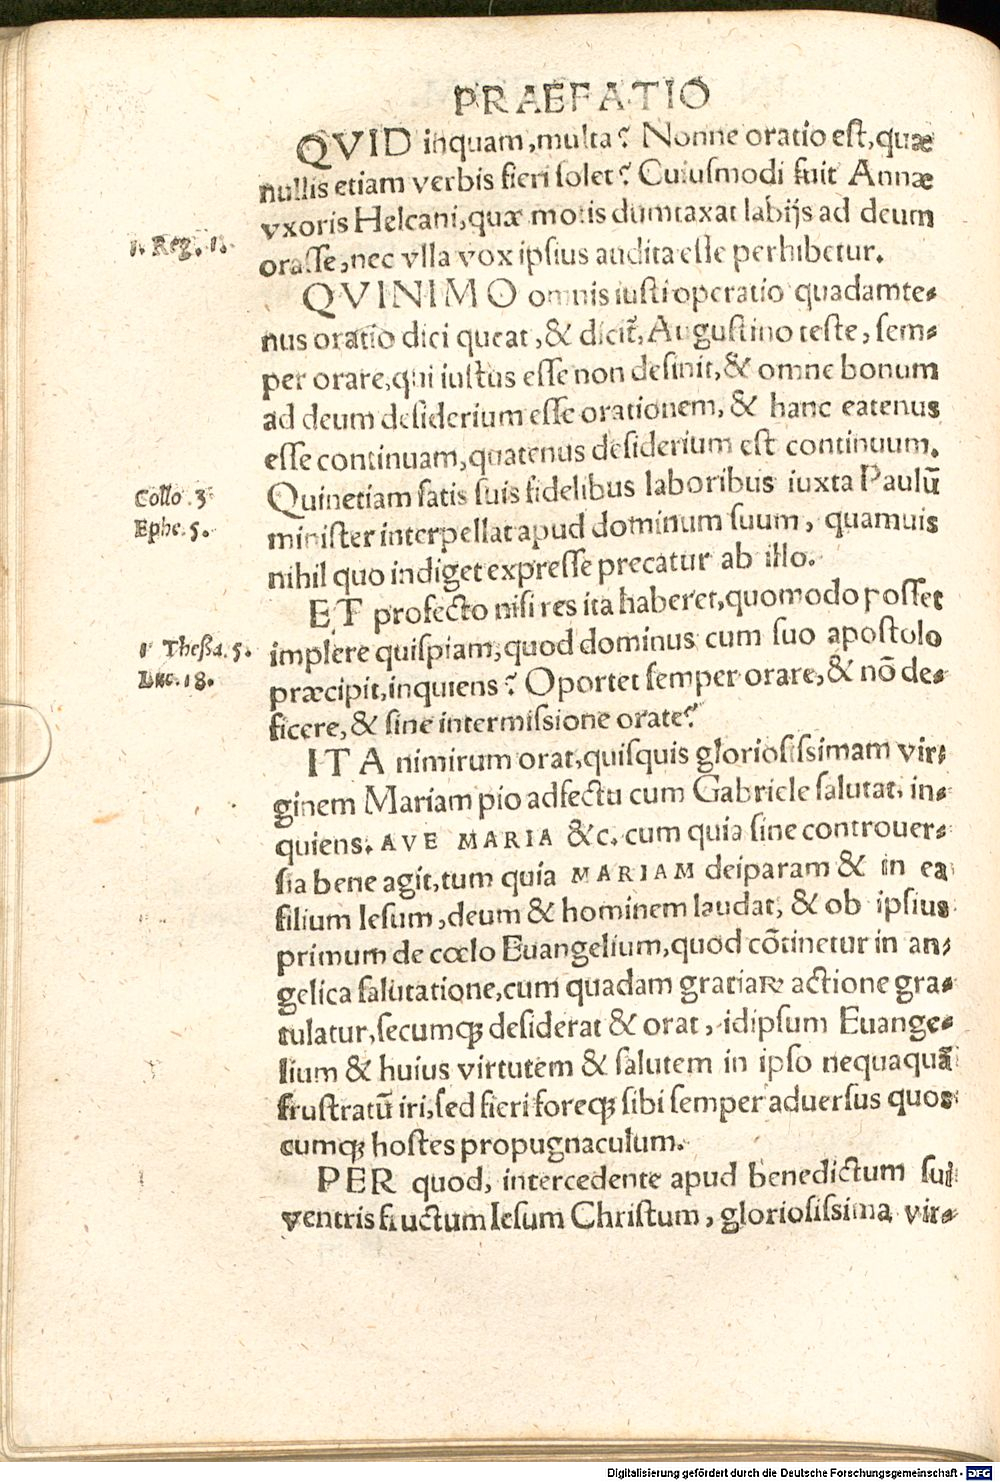 PRAEFATIO
QVID inquam, multa? Nonne oratio est, quæ
nullis etiam verbis fieri solet? Cuiusmodi fuit Annæ
vxoris Helcani, quæ motis dumtaxat labijs ad deum
1. Reg. 1.
orasse, nec vlla vox ipsius audita esse perhibetur.
QVINIMO omnis iusti operatio quadamte-
nus oratio dici queat, & dicit̃, Augustino teste, sem-
per orare, qui iustus esse non desinit, & omne bonum
ad deum desiderium esse orationem, & hanc eatenus
esse continuam, quatenus desiderium est continuum.
Collo. 3
Quinetiam satis suis fidelibus laboribus iuxta Paulū
Ephe. 5.
minister interpellat apud dominum suum, quamuis
nihil quo indiget expresse precatur ab illo.
ET profecto nisi res ita haberet, quomodo posset
1 Thessa. 5.
implere quispiam, quod dominus cum suo apostolo
Luc. 18.
præcipit, inquiens? Oportet semper orare, & nõ de-
ficere, & sine intermissione orate?
ITA nimirum orat, quisquis gloriosissimam vir-
ginem Mariam pio adfectu cum Gabriele salutat, in-
quiens. AVE MARIA &c. cum quia sine controuer-
sia bene agit, tum quia MARIAM deiparam & in ea
filium Iesum, deum & hominem laudat, & ob ipsius
primum de cœlo Euangelium, quod cõtinetur in an-
gelica salutatione, cum quadam gratiaꝝ actione gra-
tulatur, secumqꝫ desiderat & orat, idipsum Euange-
lium & huius virtutem & salutem in ipso nequaquã
frustratū iri, sed fieri foreqꝫ sibi semper aduersus quos
cumqꝫ hostes propugnaculum.
PER quod, intercedente apud benedictum sui
ventris fructum Iesum Christum, gloriosissima vir-
Digitalisierung gefördert durch die Deutsche Forschungsgemeinschaft - DFG